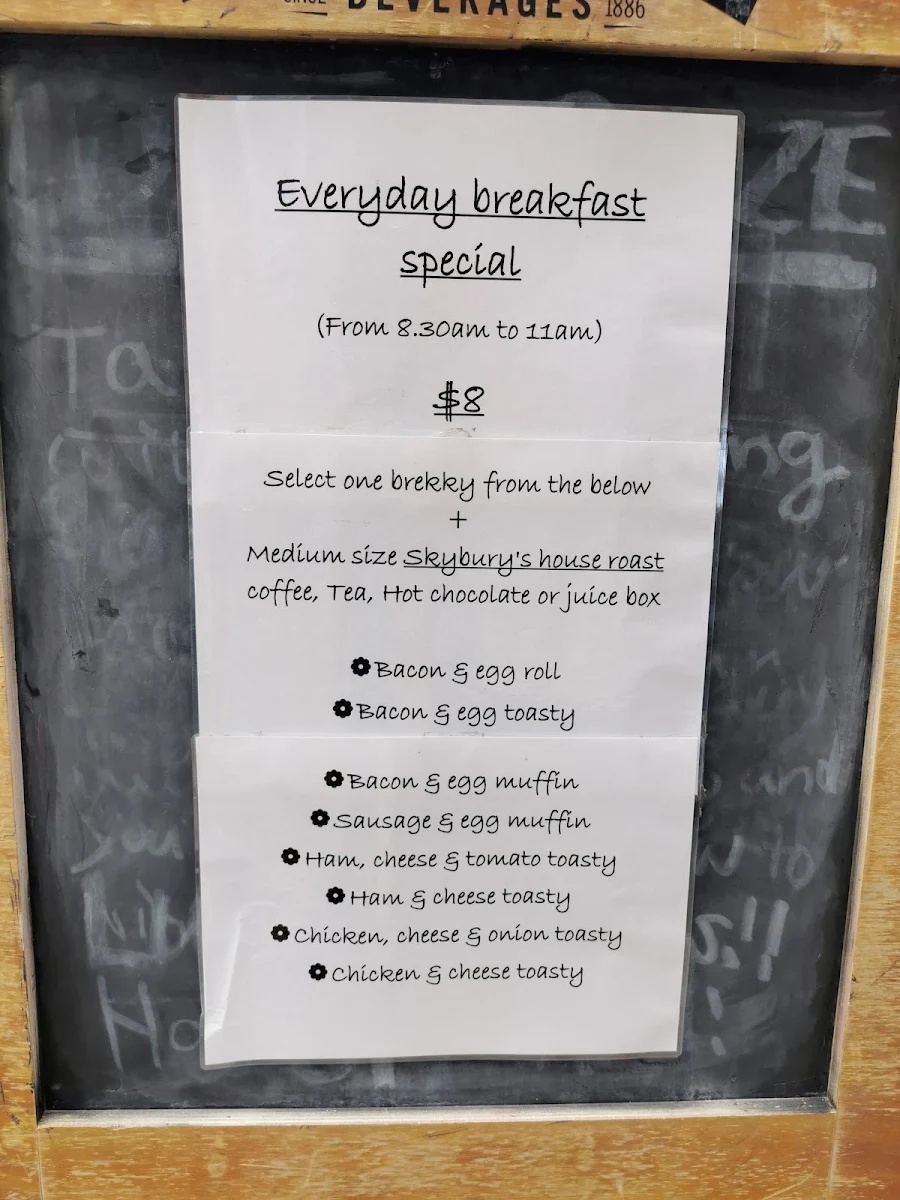 SINCE BEVERAGES 1886
Everyday breakfast
special
(From 8.30am to 11am)
$8
Select one brekky from the below
+
Medium size Skybury's house roast
coffee, Tea, Hot chocolate or juice box
Bacon & egg roll
Bacon & egg toasty
Bacon & egg muffin
Sausage & egg muffin
Ham, cheese & tomato toasty
Ham & cheese toasty
Chicken, cheese & onion toasty
Chicken & cheese toasty